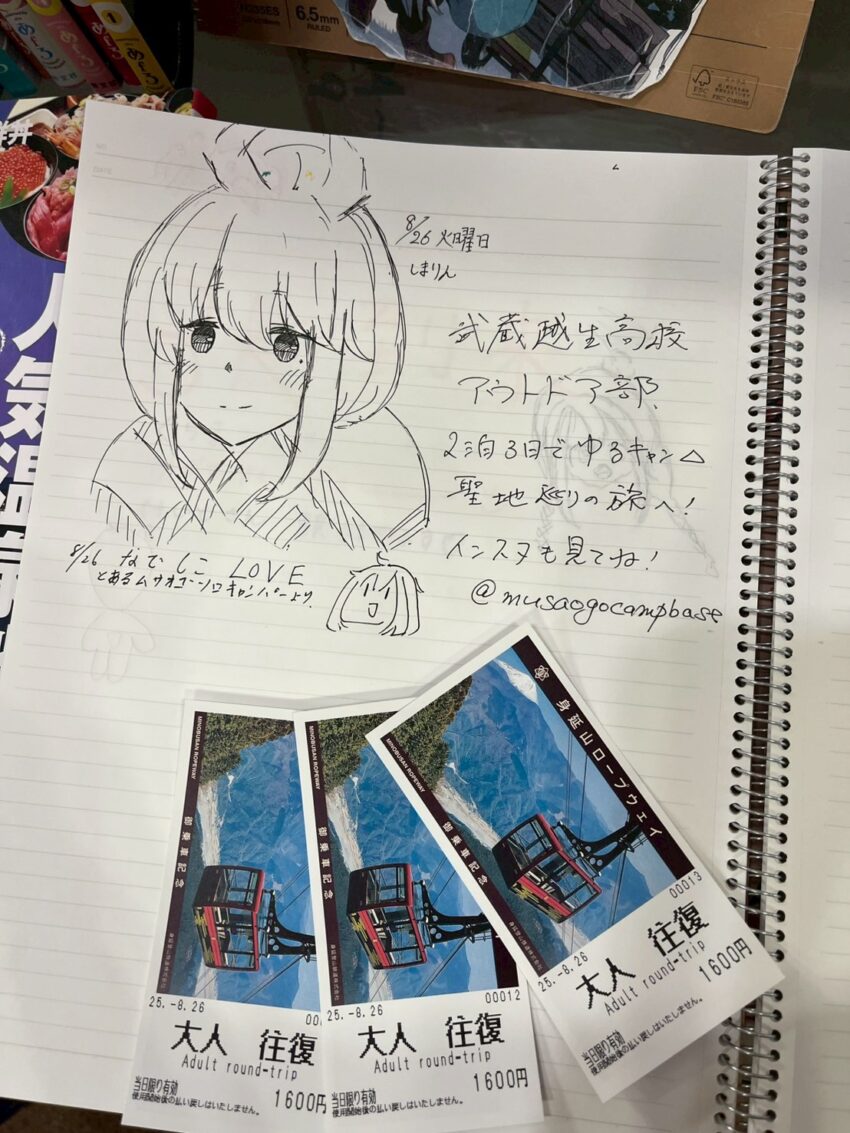 6.5mm
RULED
FSC
NO.
DATE
8/26 火曜日
しまりん
武蔵越生高校
アウトドア部
2泊3日でゆるキャン△
聖地巡りの旅へ!
インスタも見てね!
@musaogocampbase
8/26 なでしこ LOVE
とあるムサオゴソロキャンパーより
人気温
MINOBUSAN ROPEWAY
御乗車記念
25.-8.26
大人 往復
Adult round-trip
当日限り有効
使用開始後の払い戻しはいたしません。
1600円
MINOBUSAN ROPEWAY
御乗車記念
25.-8.26
00012
大人 往復
Adult round-trip
当日限り有効
使用開始後の払い戻しはいたしません。
1600円
身延山ロープウェイ
MINOBUSAN ROPEWAY
御乗車記念
身延登山鉄道株式会社
25.-8.26
00013
大人 往復
Adult round-trip
1600円
当日限り有効
使用開始後の払い戻しはいたしません。